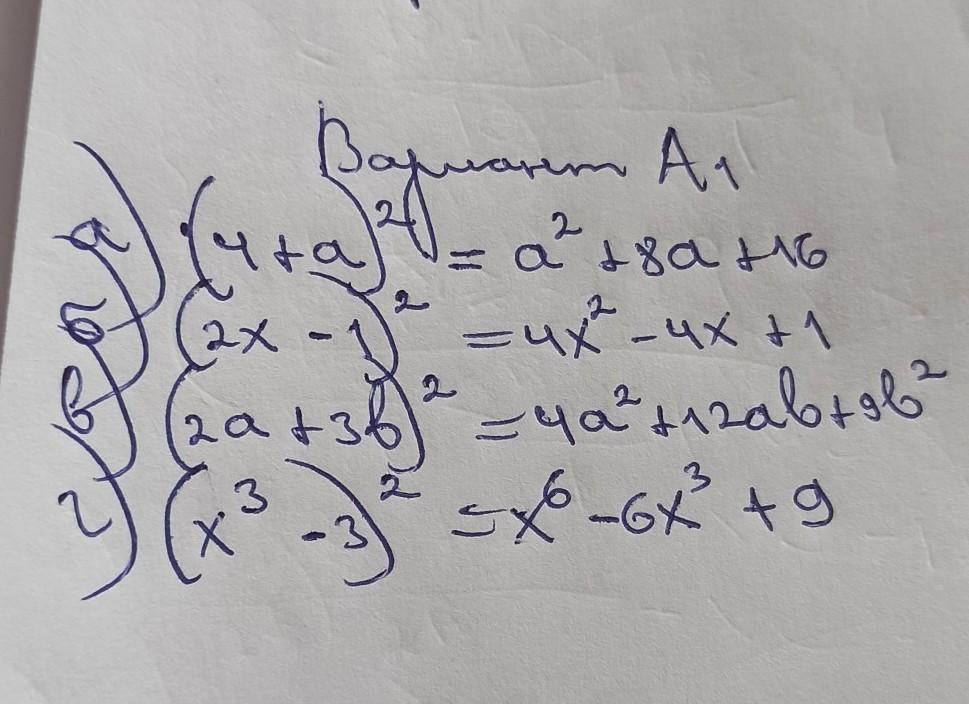 Вариант А1
а) (4+a)² = a² + 8a + 16
б) (2x - 1)² = 4x² - 4x + 1
в) (2a + 3b)² = 4a² + 12ab + 9b²
г) (x³ - 3)² = x⁶ - 6x³ + 9